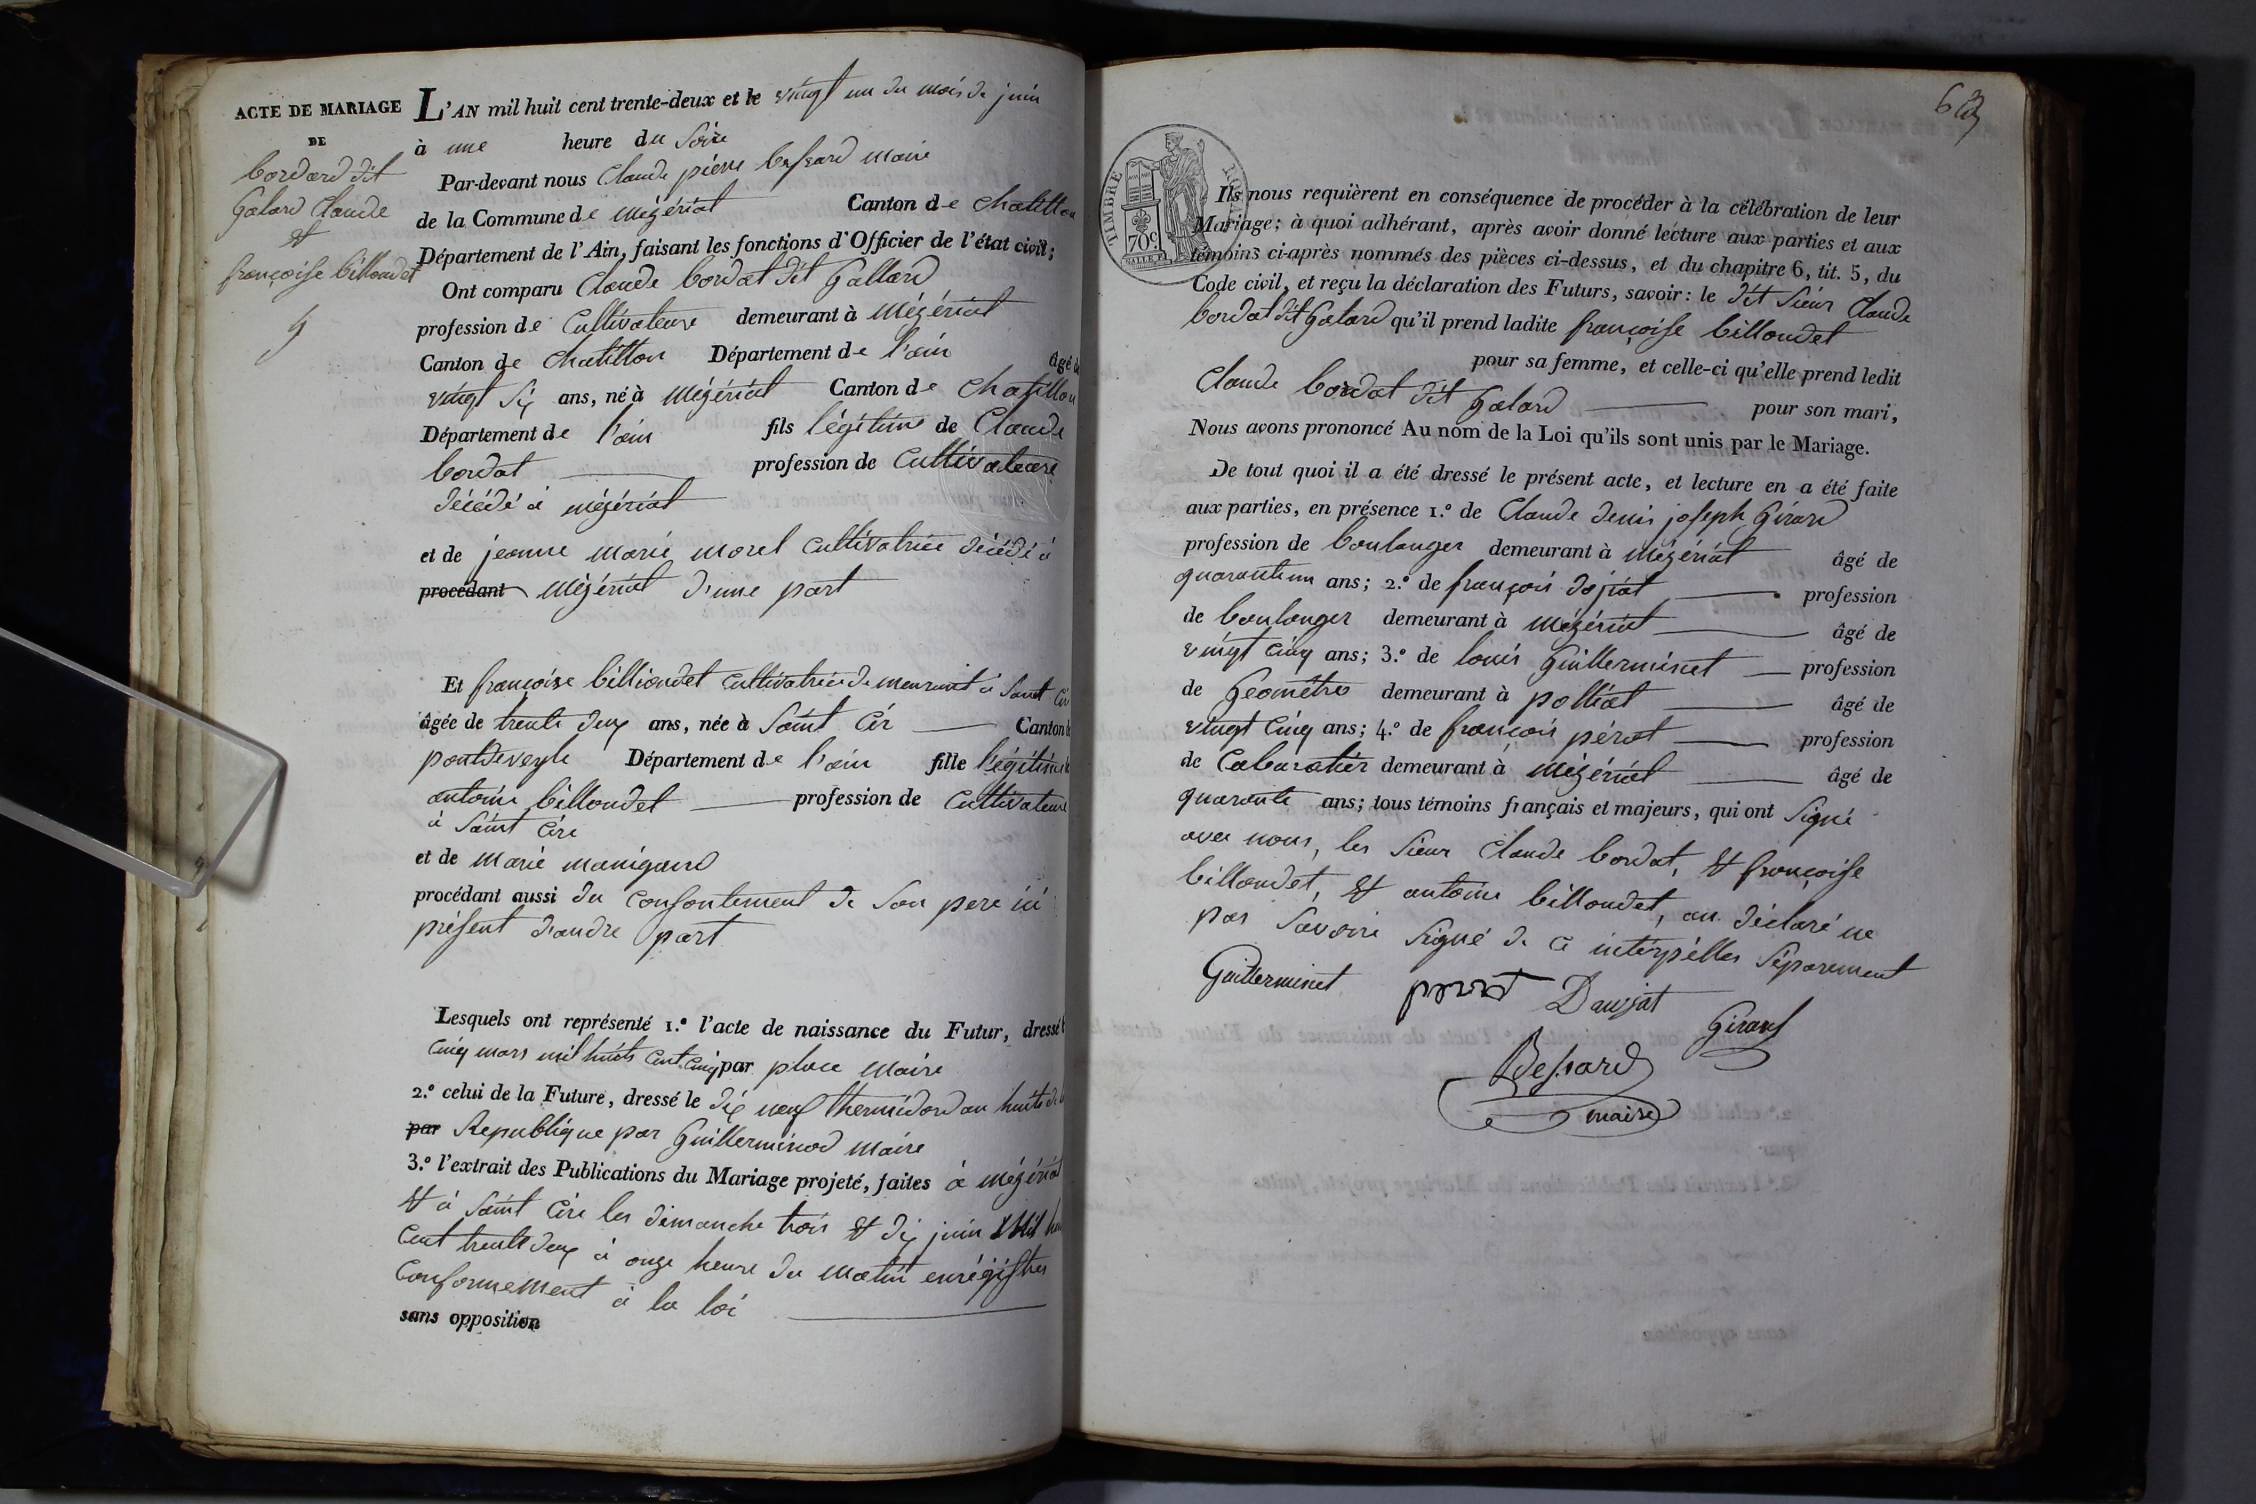 ACTE DE MARIAGE
DE
bordard dit
Galard Claude
et
françoise billoudet
9
L'AN mil huit cent trente-deux et le vingt un du mois de juin
à une heure du Soire
Par-devant nous Claude pierre bessard maire
de la Commune de mézériat Canton de Chatillon
Département de l'Ain, faisant les fonctions d'Officier de l'état civil;
Ont comparu Claude bordat dit Gallard
profession de Cultivateure demeurant à Mézériat
Canton de Chatillon Département de l'ain âgé de
vingt Six ans, né à Mézériat Canton de Chatillon
Département de l'ain fils légitime de Claude
bordat profession de Cultivateure
décédé à mézériat
et de jeanne marie morel Cultivatrice décédé à
procédant Mézériat d'une part
Et françoise billioudet Cultivatrice demeurant à Saint Cir
âgée de trente deux ans, née à Saint Cir Canton de
pontdeveyle Département de l'ain fille légitime de
antoine billoudet profession de Cultivateure
à Saint Cire
et de marie manigand
procédant aussi du Consontement de Son pere ici
présent d'audre part
Lesquels ont représenté 1.º l'acte de naissance du Futur, dressé le
Cinq mars mil huits Cent Cinq par place Maire
2.º celui de la Future, dressé le dix neuf thermidord an huits de la
par Republique par Guillerminod Maire
3.º l'extrait des Publications du Mariage projeté, faites à mézériat
et à Saint Cire les dimanche trois et dix juin Mil huit
Cent trente deux à onze heure du matin enrégistres
Conformement à la loi
sans opposition
TIMBRE ROYAL
70 c.
Ils nous requièrent en conséquence de procéder à la célébration de leur
Mariage; à quoi adhérant, après avoir donné lecture aux parties et aux
témoins ci-après nommés des pièces ci-dessus, et du chapitre 6, tit. 5, du
Code civil, et reçu la déclaration des Futurs, savoir: le dit Sieur Claude
bordat dit Galard qu'il prend ladite françoise billoudet
pour sa femme, et celle-ci qu'elle prend ledit
Claude bordat dit Galard pour son mari,
Nous avons prononcé Au nom de la Loi qu'ils sont unis par le Mariage.
De tout quoi il a été dressé le présent acte, et lecture en a été faite
aux parties, en présence 1.º de Claude denis joseph Girard
profession de boulanger demeurant à Mézériat âgé de
quarantun ans; 2.º de françois dojat profession
de boulanger demeurant à mézériat âgé de
vingt Cinq ans; 3.º de louis Guillerminet profession
de Geomêtre demeurant à polliat âgé de
vingt Cinq ans; 4.º de françois pérat profession
de Cabaratier demeurant à Mézériat âgé de
quarante ans; tous témoins français et majeurs, qui ont Signé
avec nous, les Sieur Claude bordat, et françoise
billoudet, et antoine billoudet, on déclaré ne
pas Savoire Signé de ce intérpélles Séparement
Guillerminet perrat Daujat Girard
Bessard
maire